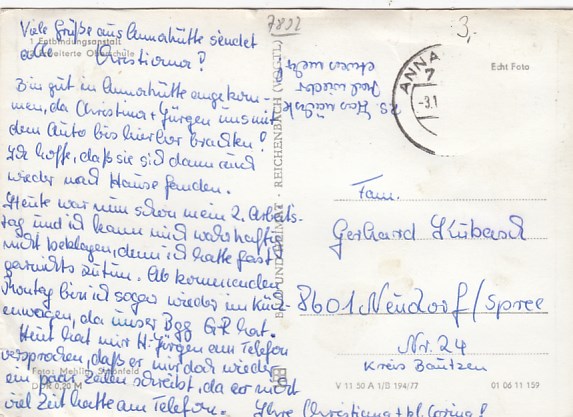 Viele Grüße aus Annahütte sendet
1 Entbindungsanstalt
erweiterte Oberschule
Christiane!
Bin gut in Annahütte angekom-
men, da Christina + Jürgen uns mit
dem Auto bis hierher brachten!
Ich hoffe, daß sie sich dann auch
wieder nach Hause fanden.
Heute war nun schon mein 2. Arbeits-
tag und ich kann mich wahrhaftig
nicht beklagen, denn ich hatte fast
garnichts zu tun. Ab kommenden
Montag bin ich sogar wieder im Kind-
erwagen, da unser Bgg hat.
Heut hat mir H-Jürgen am Telefon
versprochen, daß er mir doch wieder
ein paar Zeilen schreibt, da er nicht
viel Zeit hatte am Telefon.
Ihre Christiane + kl.
Foto: Mehlig, Schönfeld
DDR 0,20 M
7802
BILD UND HEIMAT · REICHENBACH (VOGTL)
3,-
ANNA
7
-3.1
Echt Foto
PS
etwas mehr
Fam.
Gerhard Kubasch
8601 Neudorf/Spree
Nr. 24
Kreis Bautzen
V 11 50 A 1/B 194/77
01 06 11 159